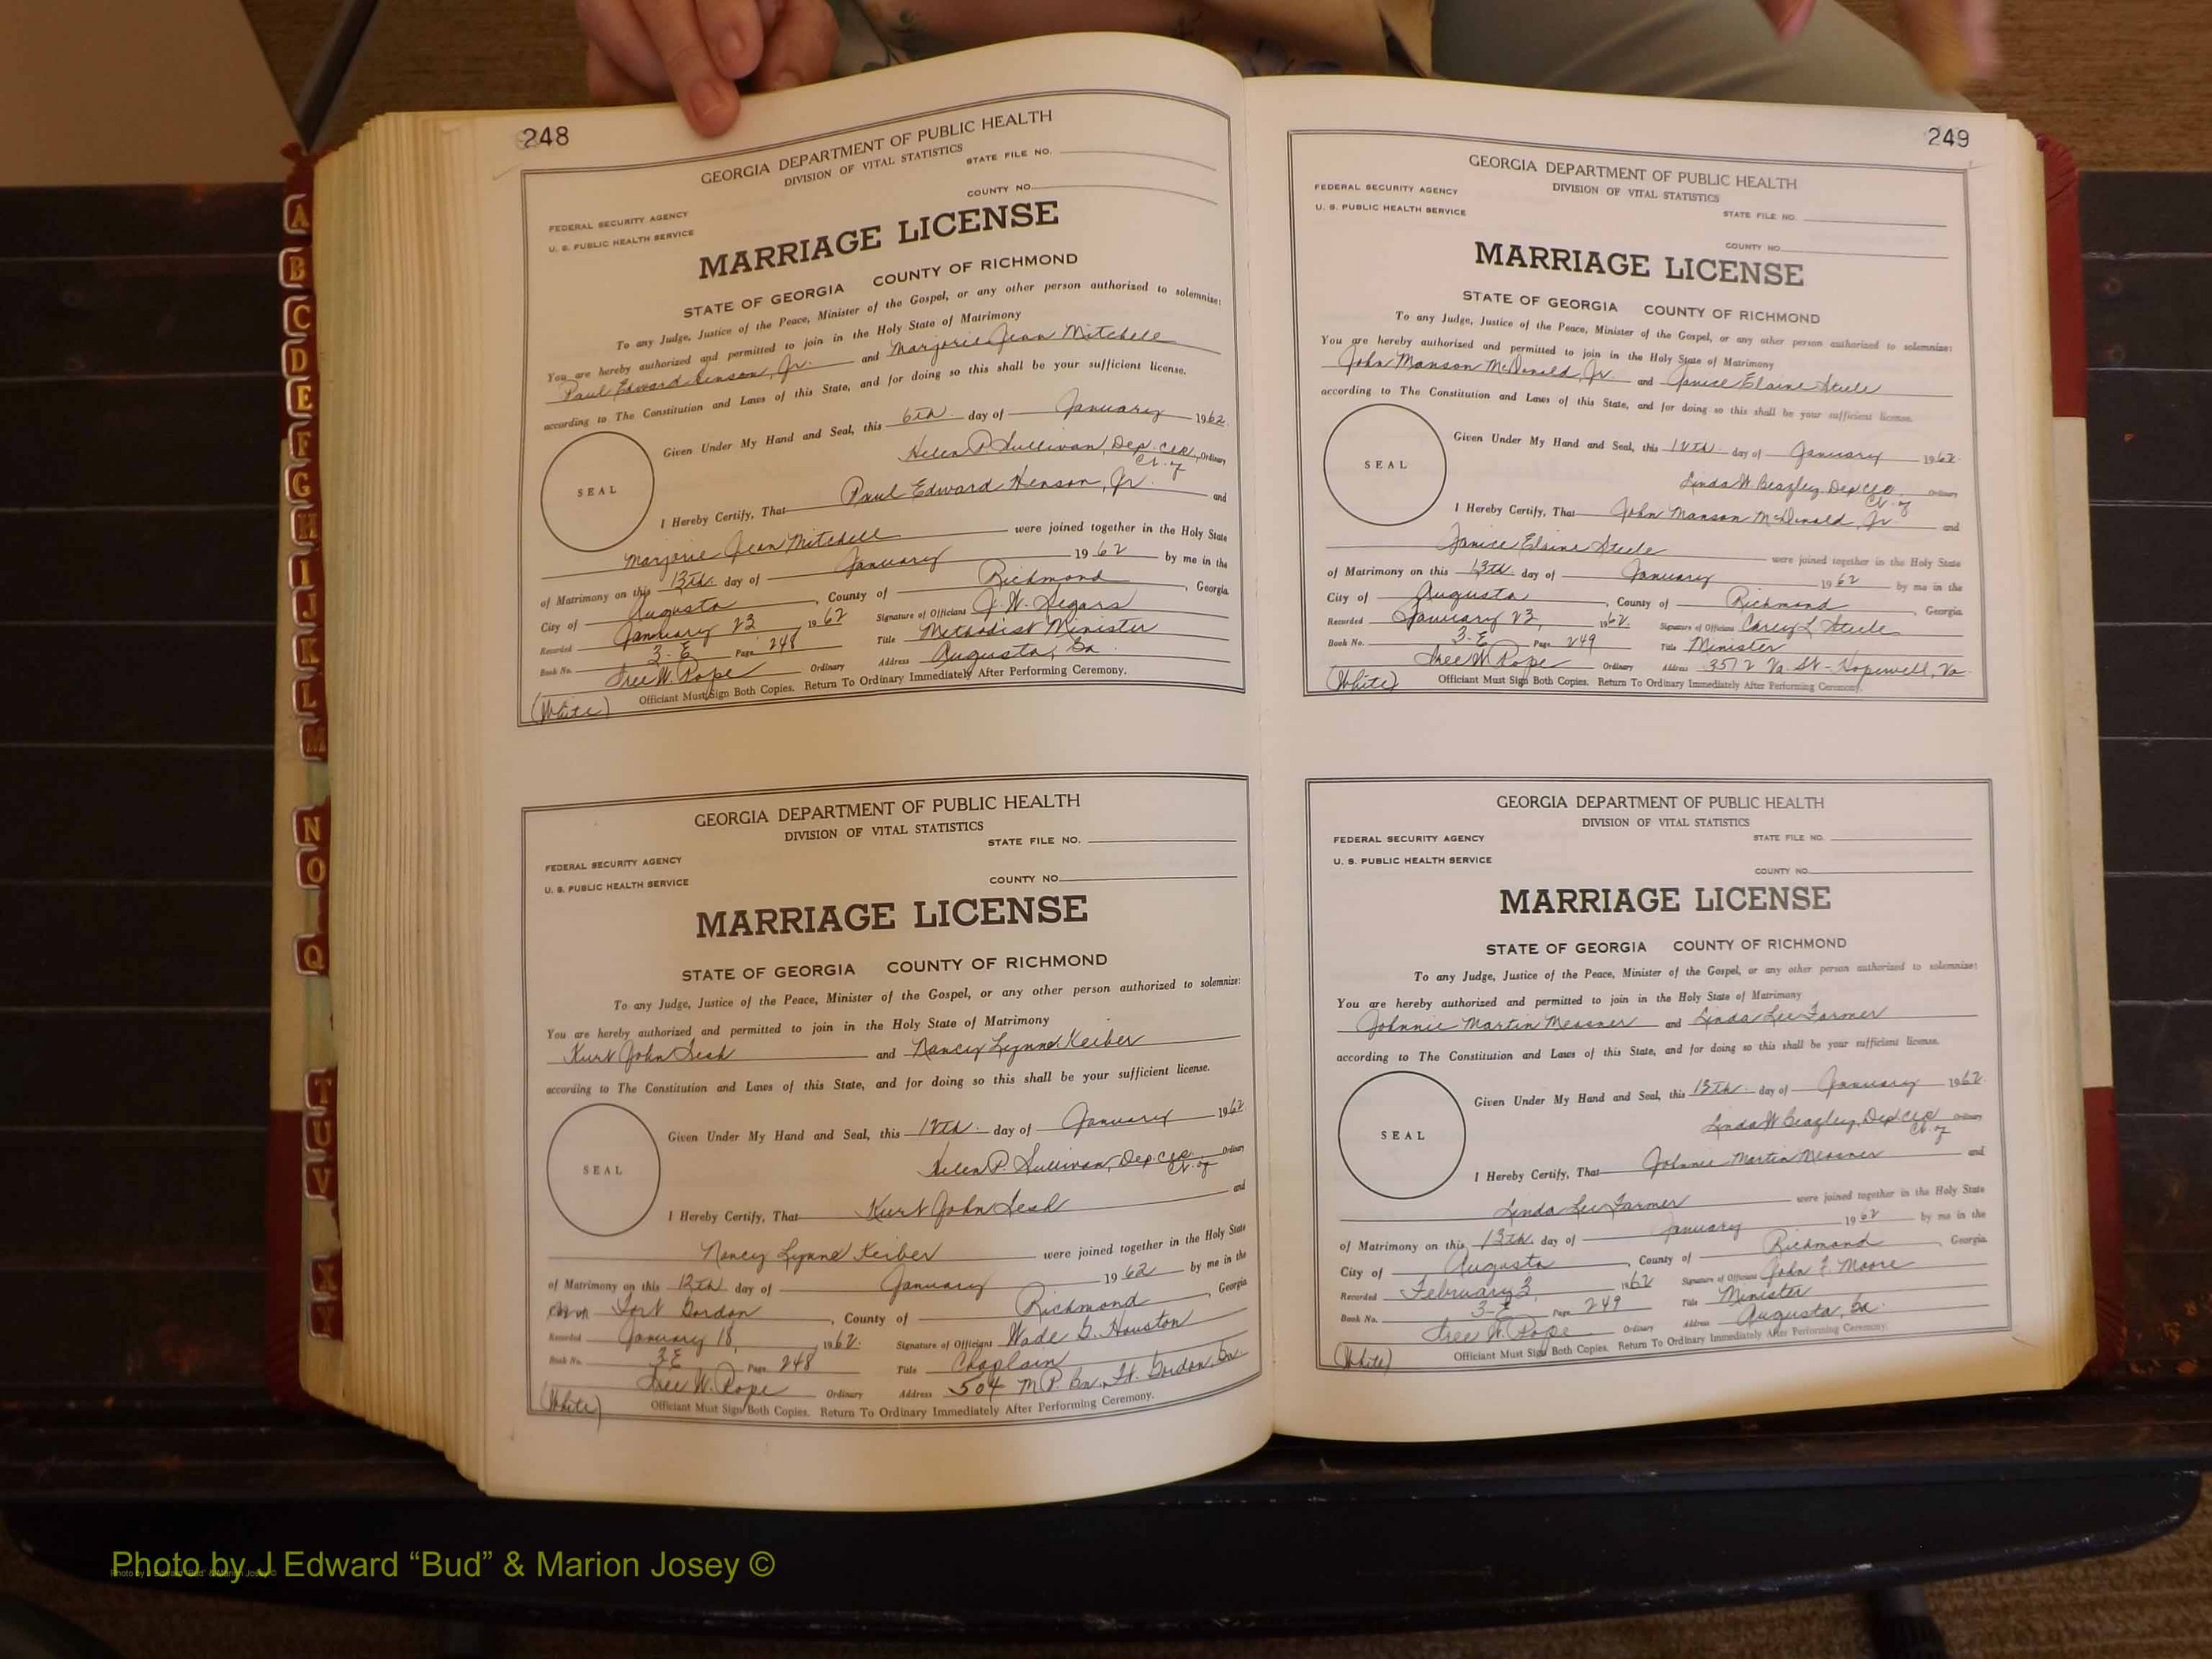 248
GEORGIA DEPARTMENT OF PUBLIC HEALTH
DIVISION OF VITAL STATISTICS
STATE FILE NO.
COUNTY NO.
FEDERAL SECURITY AGENCY
U. S. PUBLIC HEALTH SERVICE
MARRIAGE LICENSE
STATE OF GEORGIA COUNTY OF RICHMOND
To any Judge, Justice of the Peace, Minister of the Gospel, or any other person authorized to solemnize:
You are hereby authorized and permitted to join in the Holy State of Matrimony
Paul Edward Henson, Jr. and Marjorie Jean Mitchell
according to The Constitution and Laws of this State, and for doing so this shall be your sufficient license.
Given Under My Hand and Seal, this 6th. day of January 1962.
Helen P. Sullivan, Dep. Clk. Ordinary
Ct. of
SEAL
I Hereby Certify, That Paul Edward Henson, Jr. and
Marjorie Jean Mitchell were joined together in the Holy State
of Matrimony on this 13th. day of January 1962 by me in the
City of Augusta, County of Richmond, Georgia
Recorded January 23 1962 Signature of Officiant J. W. Segars
Book No. 3-E Page 248 Title Methodist Minister
Tree W. Pope Ordinary Address Augusta, Ga.
(White) Officiant Must Sign Both Copies. Return To Ordinary Immediately After Performing Ceremony.
GEORGIA DEPARTMENT OF PUBLIC HEALTH
DIVISION OF VITAL STATISTICS
STATE FILE NO.
FEDERAL SECURITY AGENCY
U. S. PUBLIC HEALTH SERVICE
COUNTY NO.
MARRIAGE LICENSE
STATE OF GEORGIA COUNTY OF RICHMOND
To any Judge, Justice of the Peace, Minister of the Gospel, or any other person authorized to solemnize:
You are hereby authorized and permitted to join in the Holy State of Matrimony
Kurt John and Nancy Lynne Keiber
according to The Constitution and Laws of this State, and for doing so this shall be your sufficient license.
Given Under My Hand and Seal, this 12th. day of January 1962
Helen P. Sullivan, Dep. Clk. Ordinary
Ct. of
SEAL
I Hereby Certify, That Kurt John and
Nancy Lynne Keiber were joined together in the Holy State
of Matrimony on this 12th day of January 1962 by me in the
Fort Gordon, County of Richmond, Georgia
Recorded January 18, 1962. Signature of Officiant Wade G. Houston
Book No. 3E Page 248 Title Chaplain
Tree W. Pope Ordinary Address 504 M P Bn, Ft. Gordon, Ga
(White) Officiant Must Sign Both Copies. Return To Ordinary Immediately After Performing Ceremony.
249
GEORGIA DEPARTMENT OF PUBLIC HEALTH
DIVISION OF VITAL STATISTICS
FEDERAL SECURITY AGENCY
U. S. PUBLIC HEALTH SERVICE
STATE FILE NO.
COUNTY NO.
MARRIAGE LICENSE
STATE OF GEORGIA COUNTY OF RICHMOND
To any Judge, Justice of the Peace, Minister of the Gospel, or any other person authorized to solemnize:
You are hereby authorized and permitted to join in the Holy State of Matrimony
John Manson McDonald, Jr. and Janice Elaine Steele
according to The Constitution and Laws of this State, and for doing so this shall be your sufficient license.
Given Under My Hand and Seal, this 12th day of January 1962.
Linda W. Beazley, Dep Clk Ordinary
Ct. of
SEAL
I Hereby Certify, That John Manson McDonald, Jr. and
Janice Elaine Steele were joined together in the Holy State
of Matrimony on this 13th. day of January 1962 by me in the
City of Augusta, County of Richmond, Georgia
Recorded January 23, 1962. Signature of Officiant Carey L Steele
Book No. 3-E Page 249 Title Minister
Tree W. Pope Ordinary Address 3512 Va St - Hopewell, Va.
(White) Officiant Must Sign Both Copies. Return To Ordinary Immediately After Performing Ceremony.
GEORGIA DEPARTMENT OF PUBLIC HEALTH
DIVISION OF VITAL STATISTICS
FEDERAL SECURITY AGENCY STATE FILE NO.
U. S. PUBLIC HEALTH SERVICE
COUNTY NO.
MARRIAGE LICENSE
STATE OF GEORGIA COUNTY OF RICHMOND
To any Judge, Justice of the Peace, Minister of the Gospel, or any other person authorized to solemnize:
You are hereby authorized and permitted to join in the Holy State of Matrimony
Johnnie Martin Messner and Linda Lee Farmer
according to The Constitution and Laws of this State, and for doing so this shall be your sufficient license.
Given Under My Hand and Seal, this 13th. day of January 1962.
Linda W Beazley, Dep Clk Ordinary
Ct. of
SEAL
I Hereby Certify, That Johnnie Martin Messner and
Linda Lee Farmer were joined together in the Holy State
of Matrimony on this 13th. day of January 1962 by me in the
City of Augusta, County of Richmond, Georgia
Recorded February 3, 1962 Signature of Officiant John F. Moore
Book No. 3-E Page 249 Title Minister
Tree W. Pope Ordinary Address Augusta, Ga.
(White) Officiant Must Sign Both Copies. Return To Ordinary Immediately After Performing Ceremony.
A
B
C
D
E
F
G
H
I
J
K
L
M
N
O
Q
T
U
V
X
Y
Photo by J Edward “Bud” & Marion Josey ©
Photo by J Edward "Bud" & Marion Josey ©